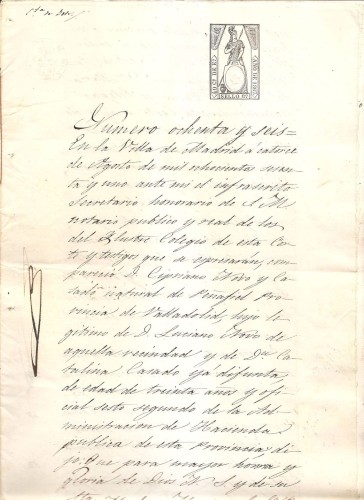 Numero ochenta y seis=
En la Villa de Madrid á catorce
de Agosto de mil ochocientos sesen
ta y uno: ante mi el infrascrito
Secretario honorario de S. M.
notario publico y real de los
del Ilustre Colegio de esta Cor
te y testigos que se espresaran, com
pareció D. Cipriano Novo y Ca
sado, natural de Peñafiel Pro
vincia de Valladolid, hijo le
gitimo de D. Luciano Novo de
aquella vecindad y de Dª Ca
talina Casado ya difunta,
de edad de treinta años y ofi
cial sesto segundo de la Ad
ministracion de Hacienda
publica de esta Provincia di
jo: Que para mayor honra y
gloria de Dios N. S. y de su